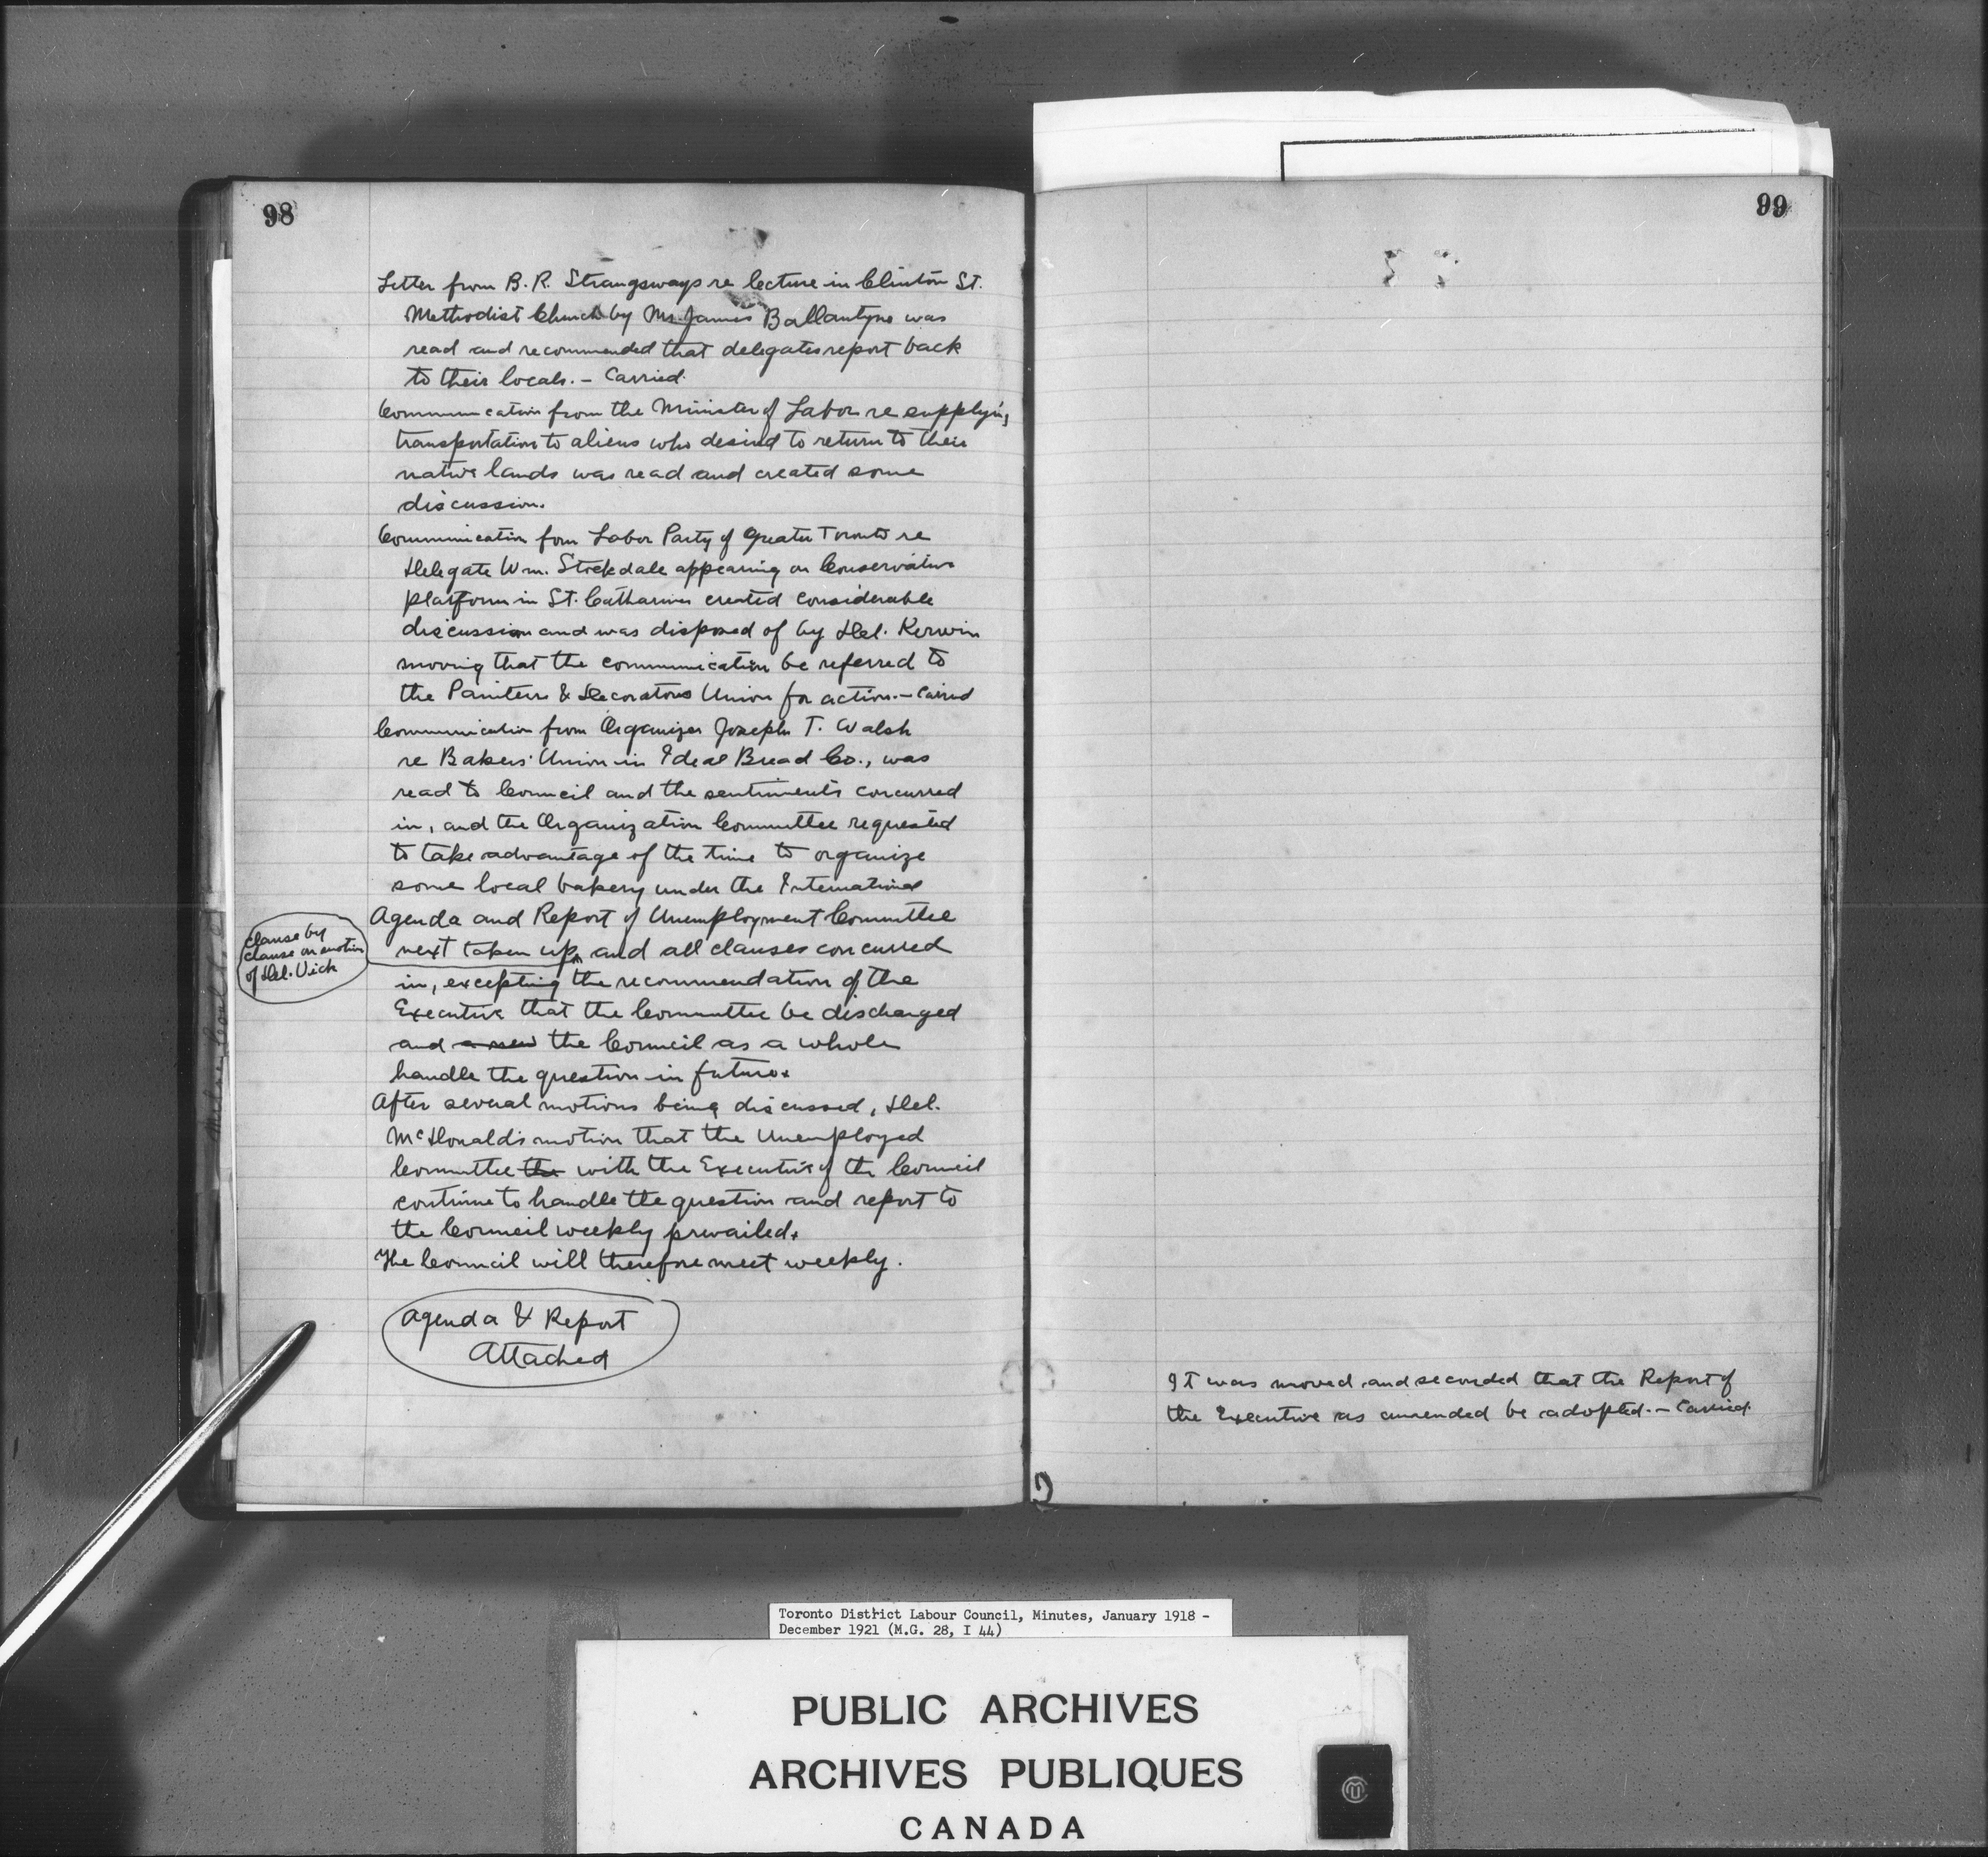 98
Letter from B. R. Strangways re lecture in Clinton St.
Methodist Church by Mr. James Ballantyne was
read and recommended that delegates report back
to their locals. – Carried.
Communication from the Minister of Labor re supplying
transportation to aliens who desired to return to their
native lands was read and created some
discussion.
Communication from Labor Party of Greater Toronto re
Delegate Wm. Stockdale appearing on Conservative
platform in St. Catharines created considerable
discussion and was disposed of by Del. Kerwin
moving that the communication be referred to
the Painters & Decorators Union for action. – Carried
Communication from Organizer Joseph T. Walsh
re Bakers' Union in Ideal Bread Co., was
read to Council and the sentiments concurred
in, and the Organization Committee requested
to take advantage of the time to organize
some local bakery under the International
Agenda and Report of Unemployment Committee
clause by
clause on motion
of Del. Vick
next taken up, and all clauses concurred
in, excepting the recommendation of the
Executive that the Committee be discharged
and a new the Council as a whole
handle the question in future.
After several motions being discussed, Del.
McDonald's motion that the Unemployed
Committee the with the Executive of the Council
continue to handle the question and report to
the Council weekly prevailed.
The Council will therefore meet weekly.
Agenda & Report
Attached
99
It was moved and seconded that the Report of
the Executive as amended be adopted. – Carried.
Toronto District Labour Council, Minutes, January 1918 -
December 1921 (M.G. 28, I 44)
PUBLIC ARCHIVES
ARCHIVES PUBLIQUES
CANADA